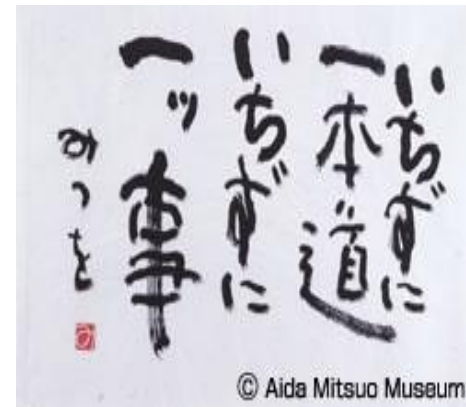 いちずに
一本道
いちずに
一ッ事
みつを
© Aida Mitsuo Museum